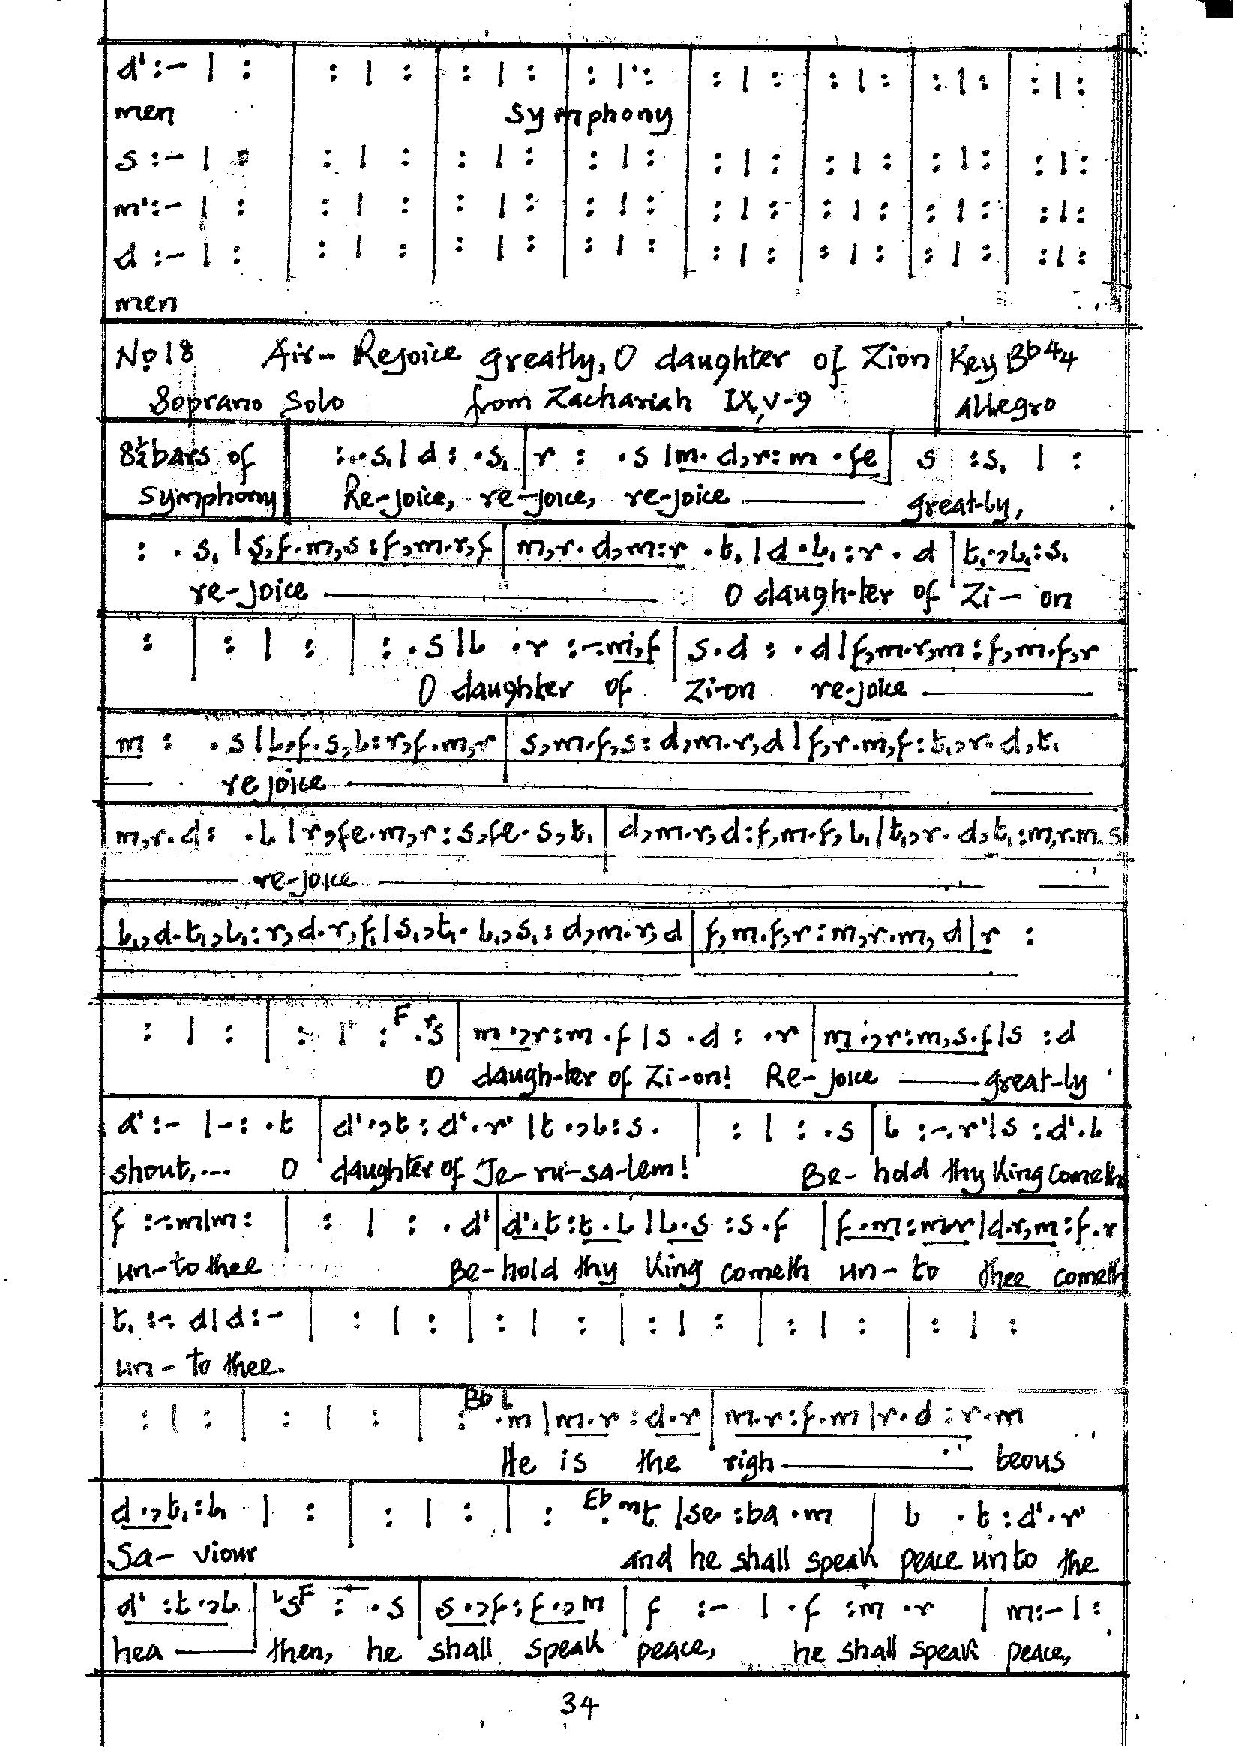 d' :– | : | : | : | : | : | : | : | : | : | : | : | : | : | : | :
men Symphony
s :– | : | : | : | : | : | : | : | : | : | : | : | : | : | : | :
m' :– | : | : | : | : | : | : | : | : | : | : | : | : | : | : | :
d :– | : | : | : | : | : | : | : | : | : | : | : | : | : | : | :
men
No 18 Air– Rejoice greatly, O daughter of Zion Key Bb 4/4
Soprano Solo from Zachariah IX, V-9 Allegro
8½ bars of : . s, | d : . s, | r : . s | m . d,r : m . fe | s : s, | :
Symphony Re-joice, re-joice, re-joice great-ly,
: . s, | s,f.m,s : f,m.r,f | m,r.d,m : r . t, | d.l, : r . d | t, ., l, : s,
re-joice O daugh-ter of Zi– on
: | : | : | : . s | l . r : – . m,f | s . d : . d | f,m.r,m : f,m.f,r
O daughter of Zi-on re-joice
m : . s | l,f.s,l : r,f.m,r | s,m.f,s : d,m.r,d | f,r.m,f : t,,r.d,t,
rejoice
m,r.d : . l | r,fe.m,r : s,fe.s,t, | d,m.r,d : f,m.f,l, | t,,r.d,t, : m,r.m.s
re-joice
l,,d.t,,l, : r,d.r,f, | s,,t,.l,,s, : d,m.r,d | f,m.f,r : m,r.m,d | r :
: | : | : | : F . rs | m ., r : m . f | s . d : . r | m ., r : m,s.f | s : d
O daugh-ter of Zi-on! Re-joice great-ly
d' :– | – : . t | d' ., t : d' . r' | t ., l : s . | : | : . s | l : – . r' | s : d' . l
shout,... O daughter of Je-ru-sa-lem! Be-hold thy King cometh
f :– . m | m : | : | : . d' | d' . t : t . l | l . s : s . f | f . m : m . r | d . r,m : f . r
un-to thee Be-hold thy King cometh un-to thee cometh
t, :– . d | d :– | : | : | : | : | : | : | : | : | : | :
un-to thee.
: | : | : | : | : Bb l . m | m . r : d . r | m . r : f . m | r . d : r . m
He is the righ teous
d ., t, : l, | : | : | : | : Eb . mt | se : ba . m | l . t : d' . r'
Sa– viour and he shall speak peace unto the
d' : t ., l | ls F : – . s | s ., f : f ., m | f :– | . f : m . r | m :– | :
hea then, he shall speak peace, he shall speak peace,
34